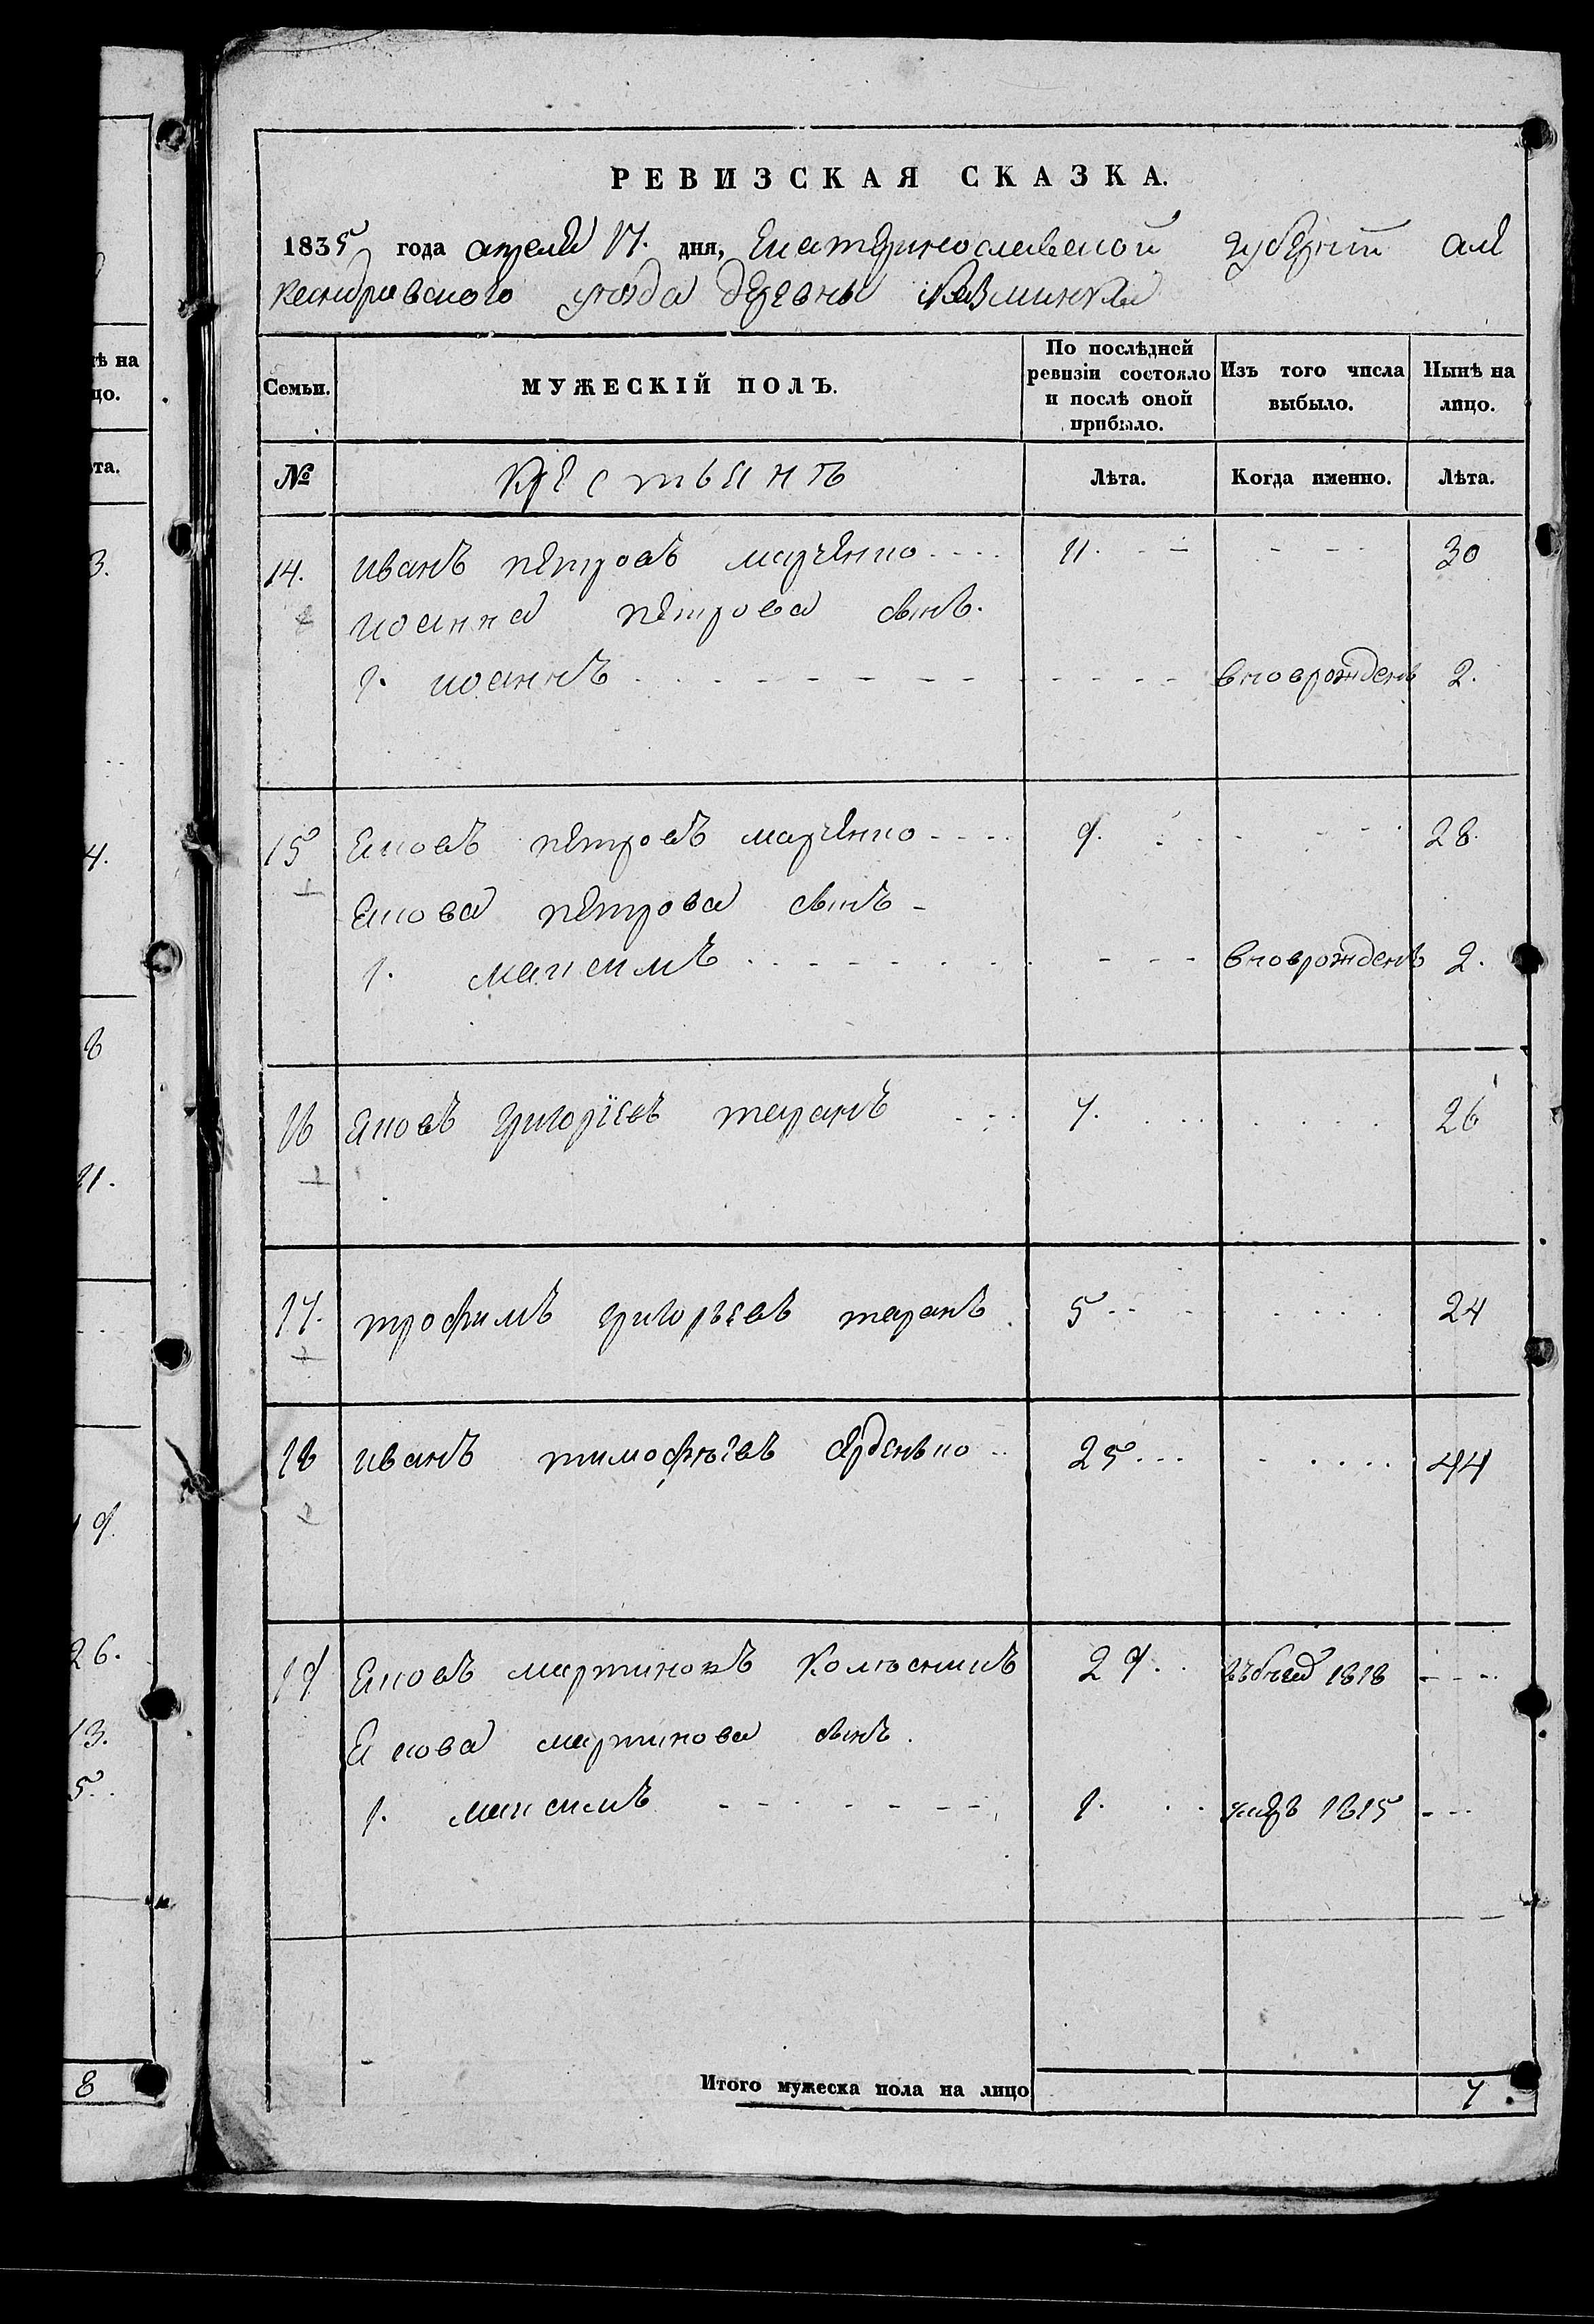 РЕВИЗСКАЯ СКАЗКА.
1835 года апреля 17. дня, Екатеринославской губернии але
ксандровского уезда деревны
Семьи. МУЖЕСКІЙ ПОЛЪ. По послѣдней ревизіи состояло и послѣ оной прибыло. Изъ того числа выбыло. Нынѣ на лицо.
№ Крестьянъ Лѣта. Когда именно. Лѣта.
14. иванъ петровъ марченко 11. 30
иоанна петрова сынъ.
1. иоаннъ вноврожденъ 2.
15 Яковъ петровъ марченко 9. 28.
Якова петрова сынъ
1. максимъ вноврожденъ 2.
16 Яковъ григоріевъ таранъ 7. 26
17. трофимъ григорьевъ таранъ 5 24
18 иванъ тимофѣевъ 25 44
19 Яковъ мартиновъ колѣсникъ 29. 1818
Якова мартинова сынъ.
1. максимъ 1. 1815
Итого мужеска пола на лицо 7.
нѣ на
цо.
ѣта.
3.
4.
8
21.
9.
26.
13.
5.
8